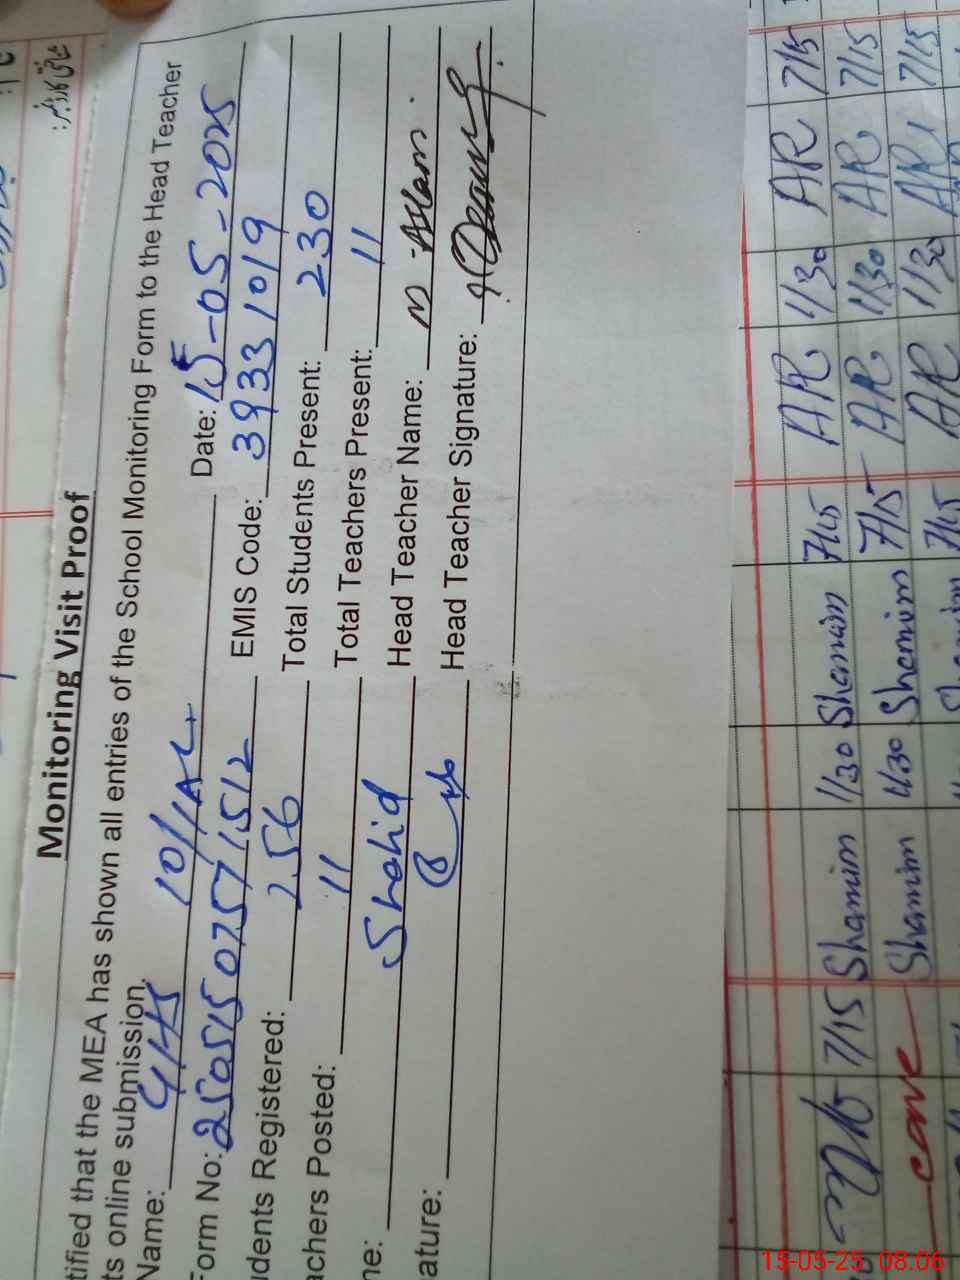 Monitoring Visit Proof
tified that the MEA has shown all entries of the School Monitoring Form to the Head Teacher
ts online submission.
Name: 10/1AL Date: 15-05-2025
Form No: 25051507571512 EMIS Code: 39331019
udents Registered: 256 Total Students Present: 230
achers Posted: 11 Total Teachers Present: 11
ne: Shahid Head Teacher Name: M. Aslam.
ature: Head Teacher Signature:
7/15 Shamim 1/30 Shamim 7/15 AR 1/30 AR 7/15
Shamim 1/30 Shamim 7/15 AR 1/30 AR 7/15
7/15 AR 1/30 AR 7/15
15-05-25 08:06